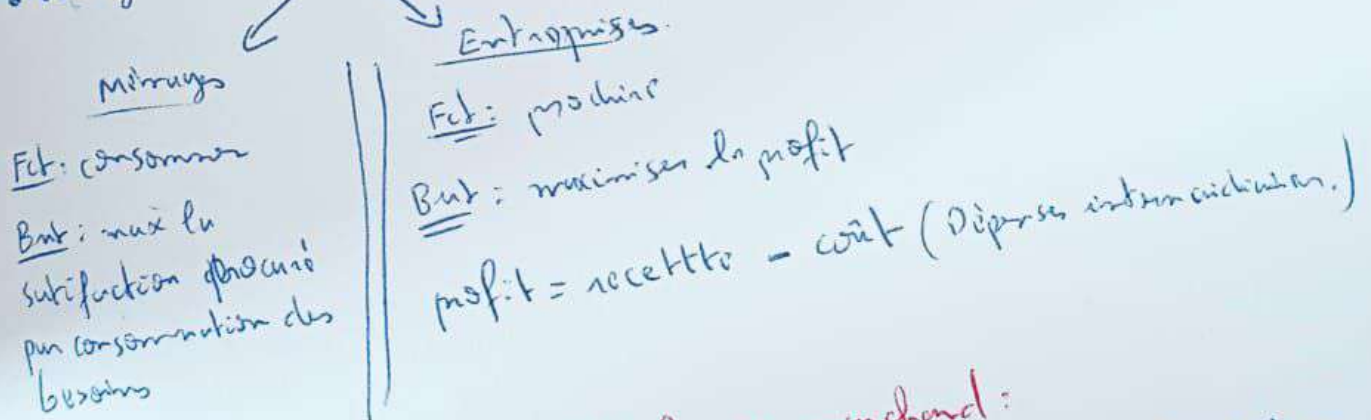 Ménages
Fct: consommer
But: max la
satisfaction procuré
par consommation des
besoins
Entreprises.
Fct: produire
But: maximiser le profit
profit = recettte - coût (Dépenses intermédiaires.)